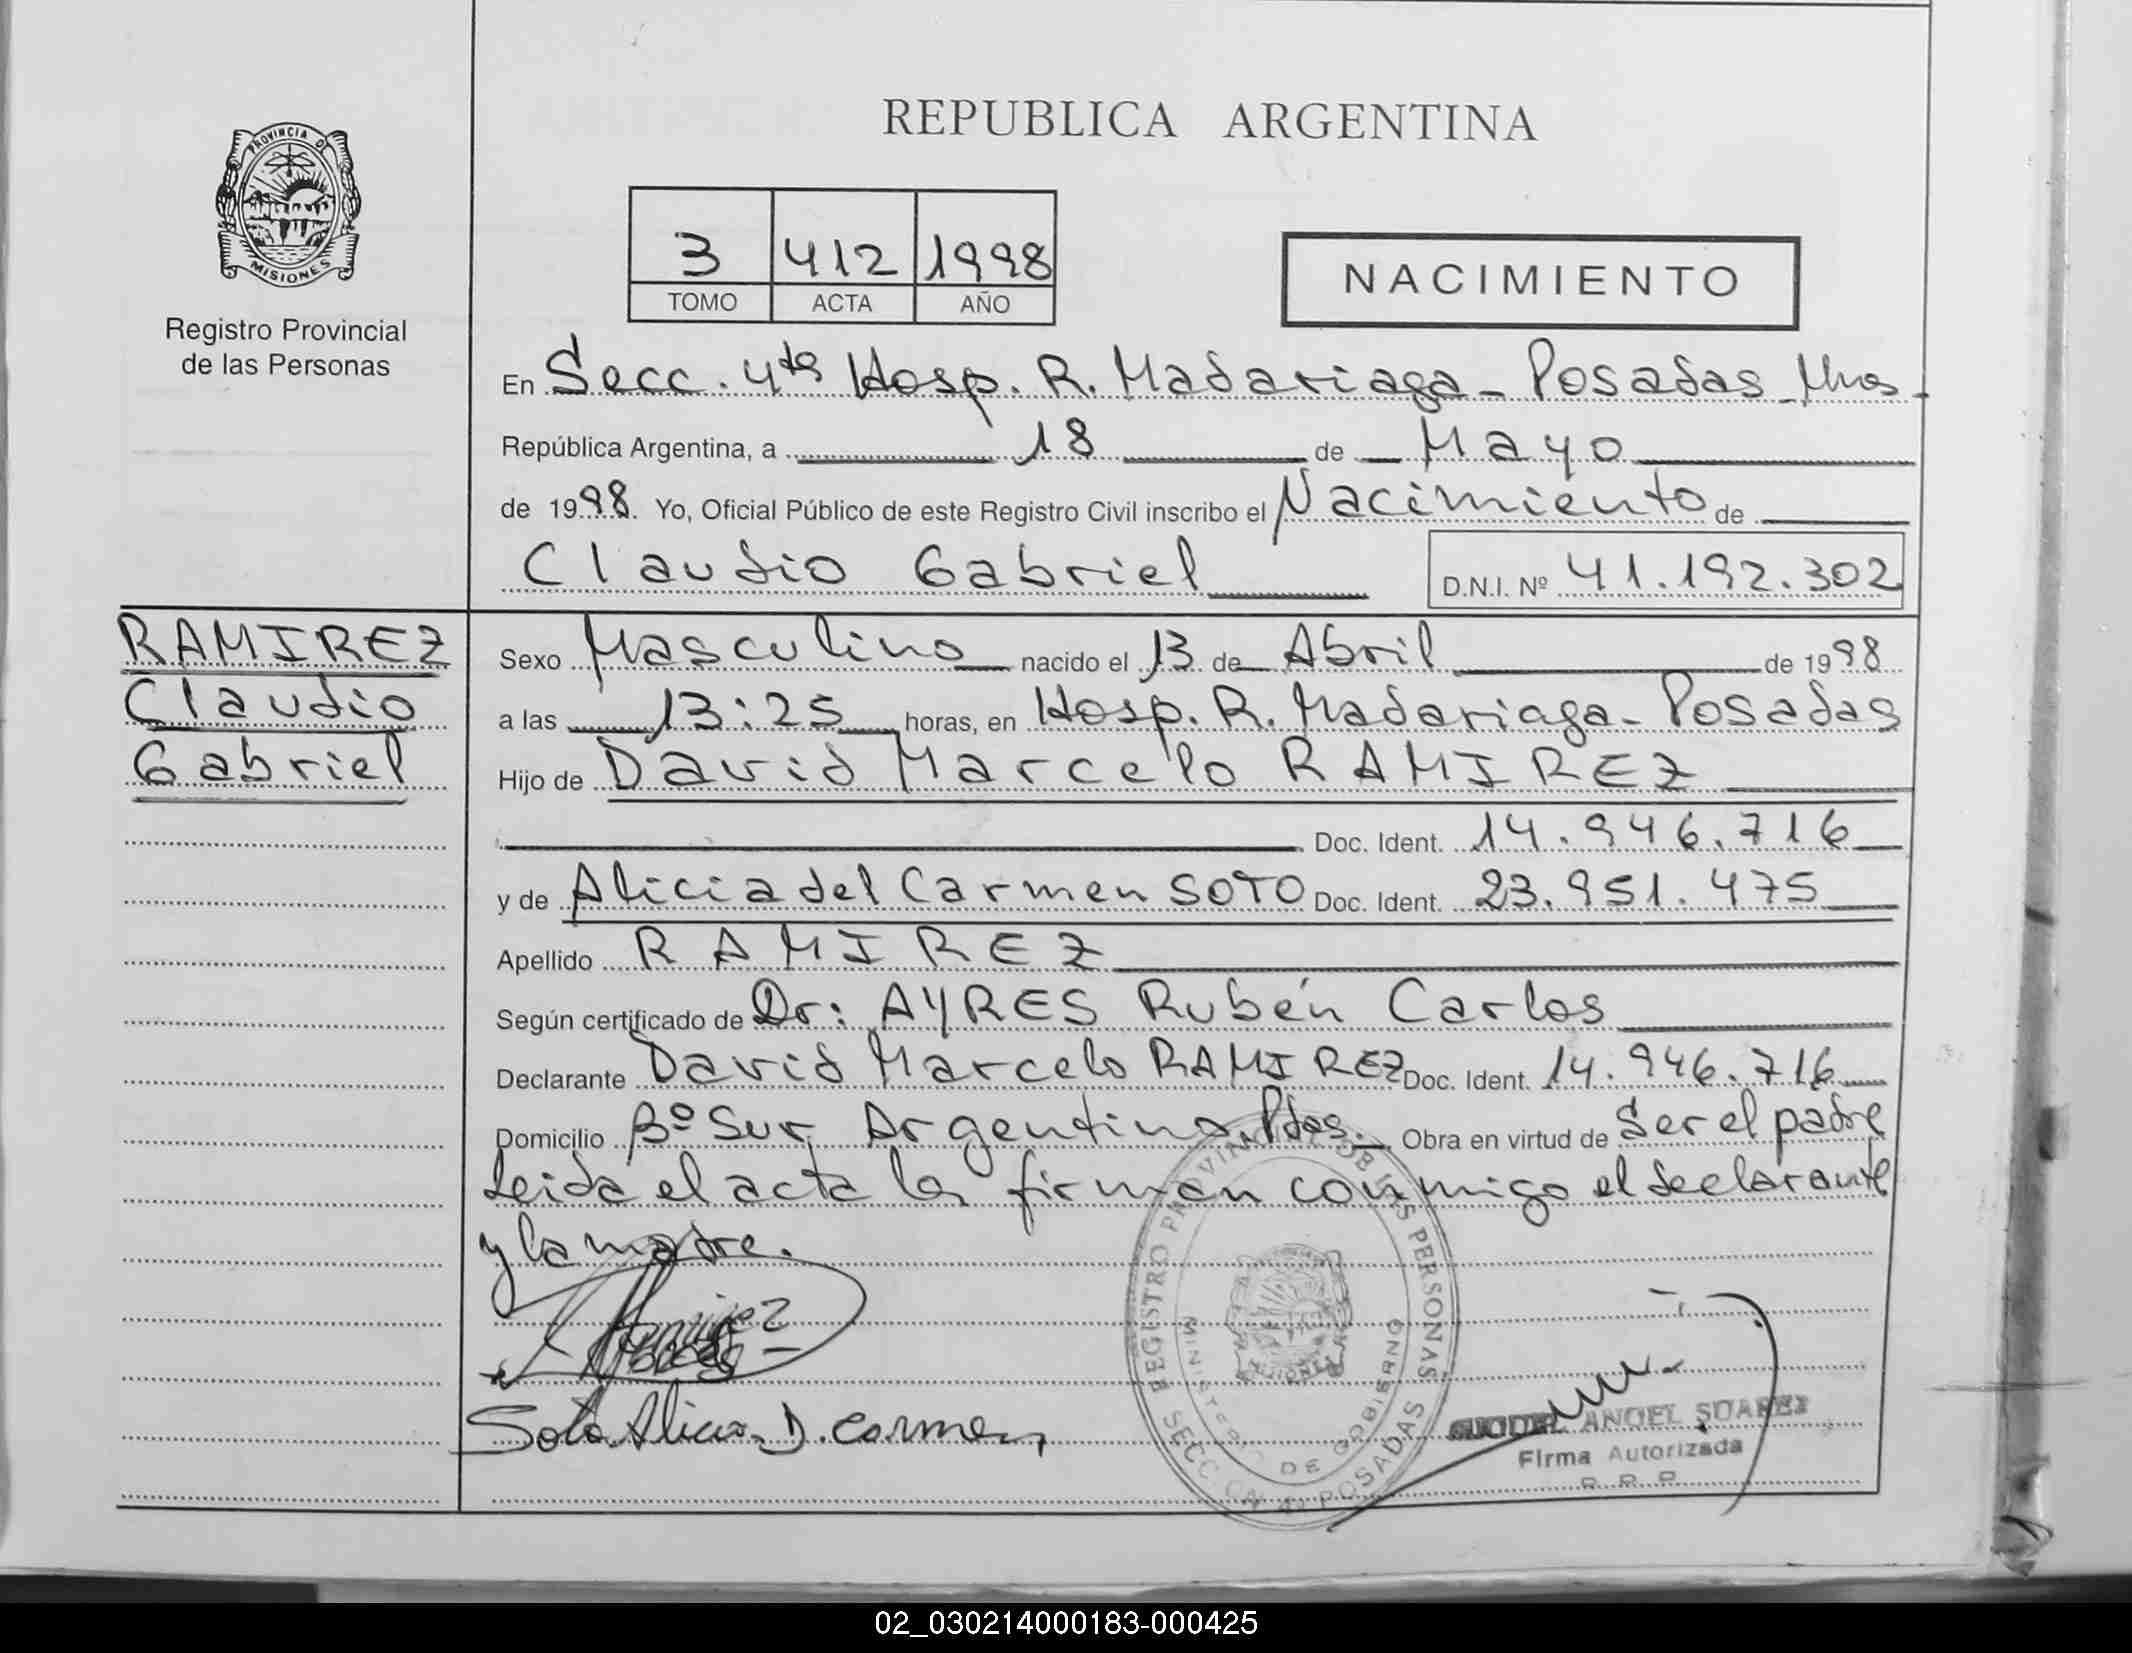 REPUBLICA ARGENTINA
PROVINCIA DE
MISIONES
Registro Provincial
de las Personas
3 412 1998
TOMO ACTA AÑO
NACIMIENTO
En Secc. 4ta Hosp. R. Madariaga - Posadas - Mnes -
República Argentina, a 18 de Mayo
de 1998. Yo, Oficial Público de este Registro Civil inscribo el Nacimiento de
Claudio Gabriel D.N.I. Nº 41.192.302
RAMIREZ
Claudio
Gabriel
Sexo Masculino nacido el 13 de Abril de 1998
a las 13:25 horas, en Hosp. R. Madariaga - Posadas
Hijo de David Marcelo RAMIREZ
Doc. Ident. 14.946.716
y de Alicia del Carmen SOTO Doc. Ident. 23.951.475
Apellido RAMIREZ
Según certificado de Dr: AYRES Rubén Carlos
Declarante David Marcelo RAMIREZ Doc. Ident. 14.946.716
Domicilio Bº Sur Argentino. Pdas. Obra en virtud de Ser el padre
Leida el acta la firman conmigo el declarante
y la madre.
Ramirez
Soto Alicia D. Carmen
REGISTRO PROVINCIAL DE LAS PERSONAS
MINISTERIO DE GOBIERNO
SECCION 4a POSADAS
ANGEL SUAREZ
Firma Autorizada
R. R. P.
02_030214000183-000425